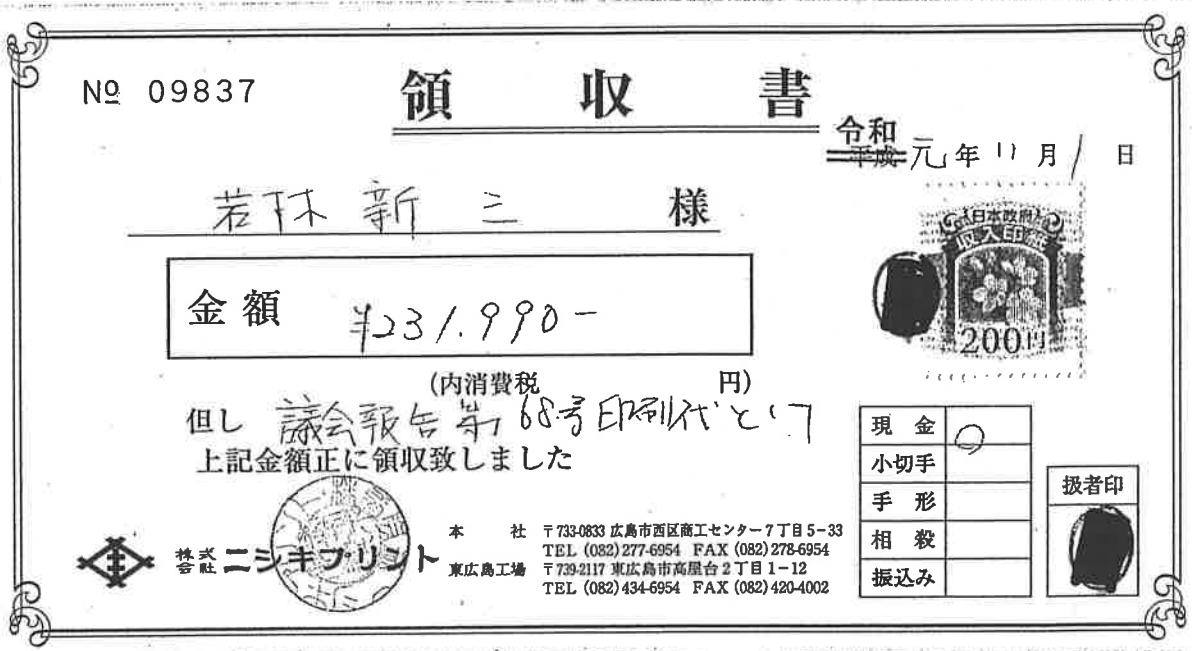 № 09837
領収書
令和
平成 元年 11月 1日
若林 新三 様
日本政府
収入印紙
200円
金額 ¥231.990-
(内消費税 円)
但し 議会報告第68号印刷代として
上記金額正に領収致しました
現金 ○
小切手
手形
相殺
振込み
扱者印
株式会社 ニシキプリント
本社 〒733-0833 広島市西区商工センター7丁目5-33
TEL (082)277-6954 FAX (082)278-6954
東広島工場 〒739-2117 東広島市高屋台2丁目1-12
TEL (082)434-6954 FAX (082)420-4002